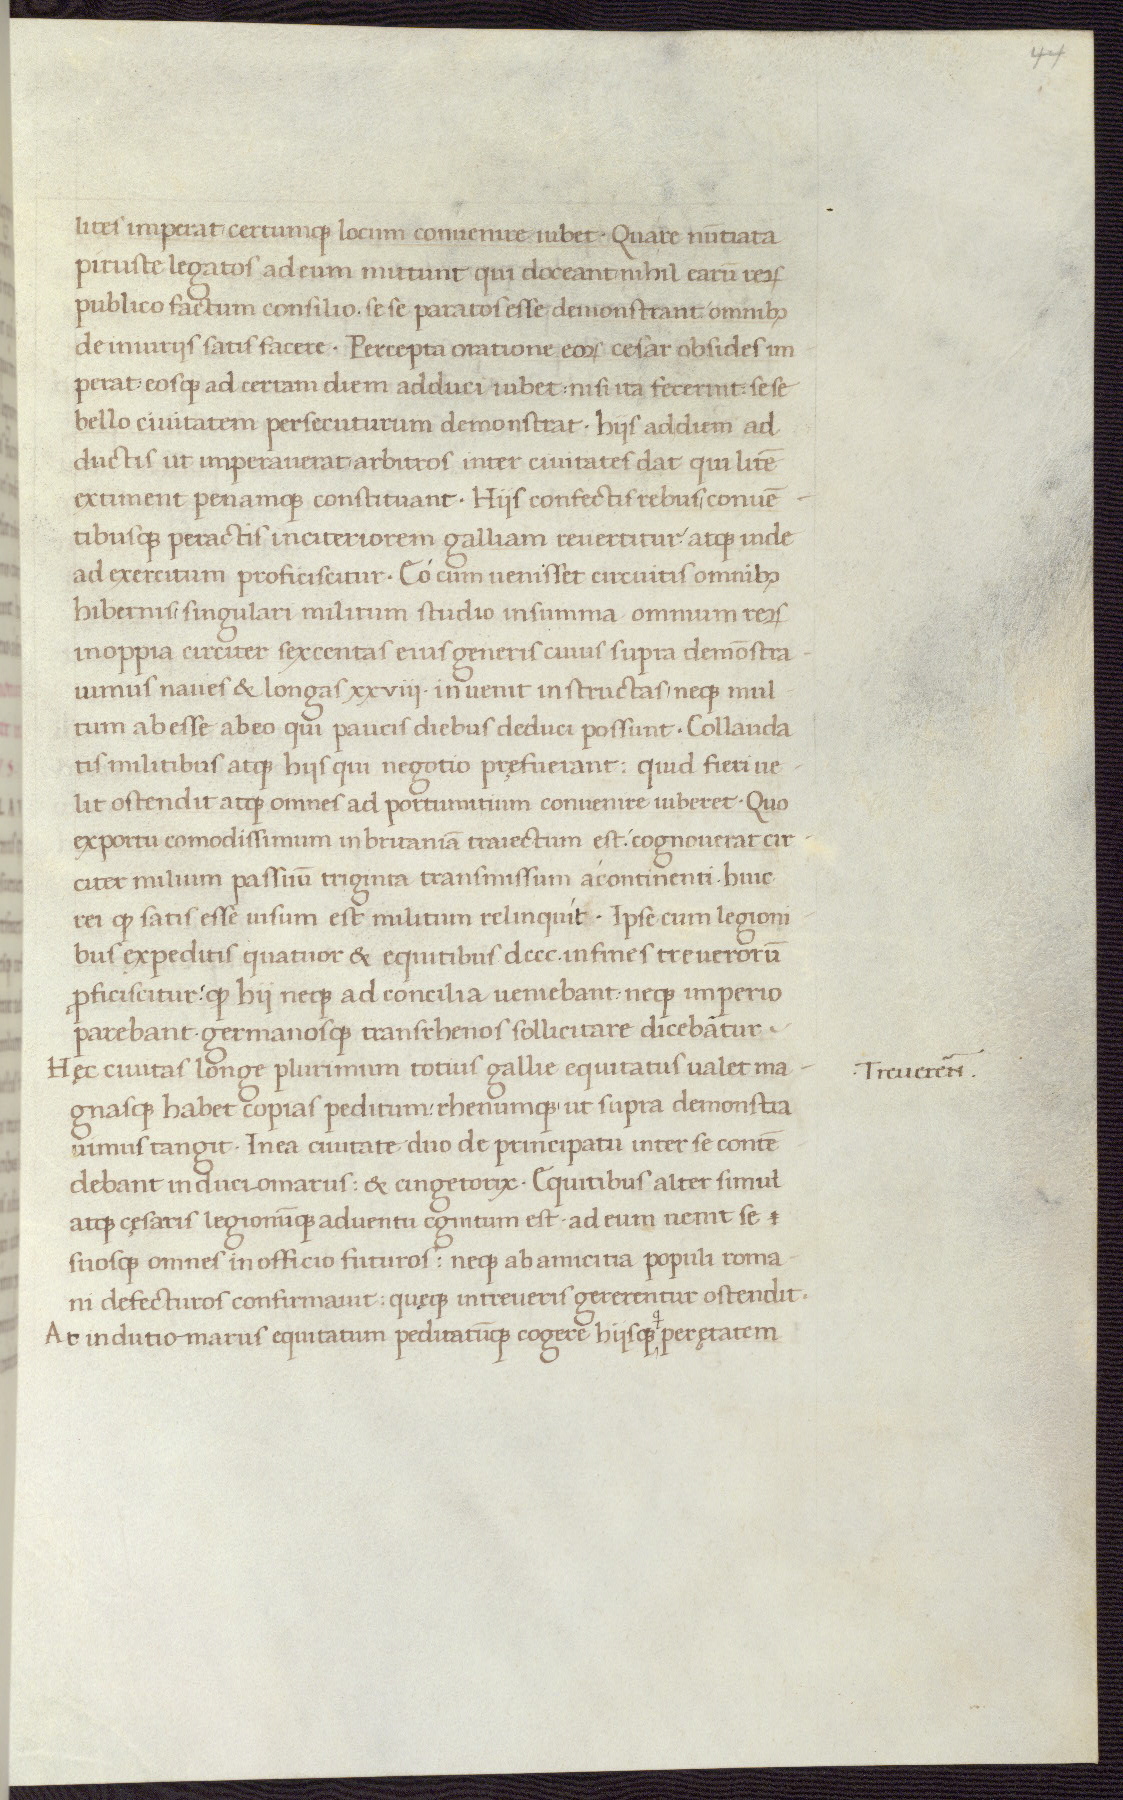 44
lites imperat certumq; locum conuenire iubet · Quare nūtiata
piruste legatos ad eum mittunt qui doceant nihil earū reꝝ
publico factum consilio . se se paratos esse demonstrant omnibꝫ
de iniuriis satis facere · Percepta oratione eoꝝ cesar obsides im
perat: eosq; ad certam diem adduci iubet: nisi ita fecerint: se se
bello ciuitatem persecuturum demonstrat · hijs ad diem ad
ductis ut imperauerat arbitros inter ciuitates dat qui litē
extiment penamq; constituant · Hijs confectis rebus, conuē-
tibusq; peractis in citeriorem galliam reuertitur: atq; inde
ad exercitum proficiscitur · Eó cum uenisset circuitis omnibꝫ
hibernis, singulari militum studio in summa omnium reꝝ
inoppia circiter sexcentas eius generis cuius supra demōstra-
uimus naues & longas xxviij · inuenit instructas, neq; mul-
tum abesse ab eo qui paucis diebus deduci possunt · Collauda
tis militibus atq; hijs qui negotio pręfuerant: quid fieri ue-
lit ostendit atq; omnes ad portumitium conuenire iuberet · Quo
ex portu comodissimum in britaniā traiectum est: cognouerat cir-
citer milium passuū triginta transmissum á continenti · huic
rei ꝙ satis esse uisum est militum relinquit · Ipse cum legioni
bus expeditis quatuor & equitibus dccc. in fines treuerorū
ꝓficiscitur: ꝙ hij neq; ad concilia ueniebant: neq; imperio
parebant · germanosq; transrhenos sollicitare dicebātur ·
Hęc ciuitas longe plurimum totius gallie equitatus ualet ma-
·Treuerēn̄.
gnasq; habet copias peditum: rhenumq; ut supra demonstra
uimus tangit · In ea ciuitate duo de principatu inter se contē
debant induciomarus: & cingetorix · Equitibus alter simul
atq; cęsaris legionūq; aduentu cgnitum est · ad eum uenit se ⁊
suosq; omnes in officio futuros: neq; ab amicitia populi roma-
ni defecturos confirmauit: quęq; in treueris gererentur ostendit ·
At indutiomarus equitatum peditatūq; cogere hijsq; q̄ per ętatem